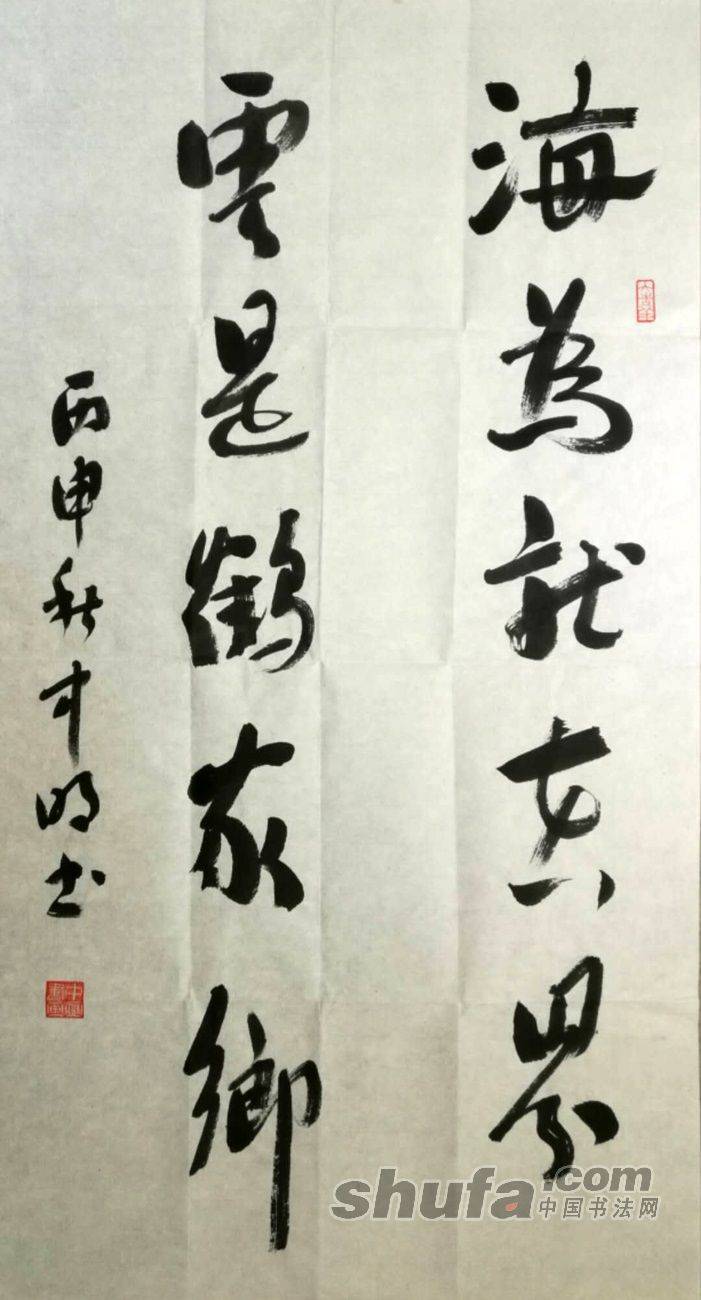 海為龍真界
雲是鶴家鄉
丙申秋中明书
shufa.com
中国书法网